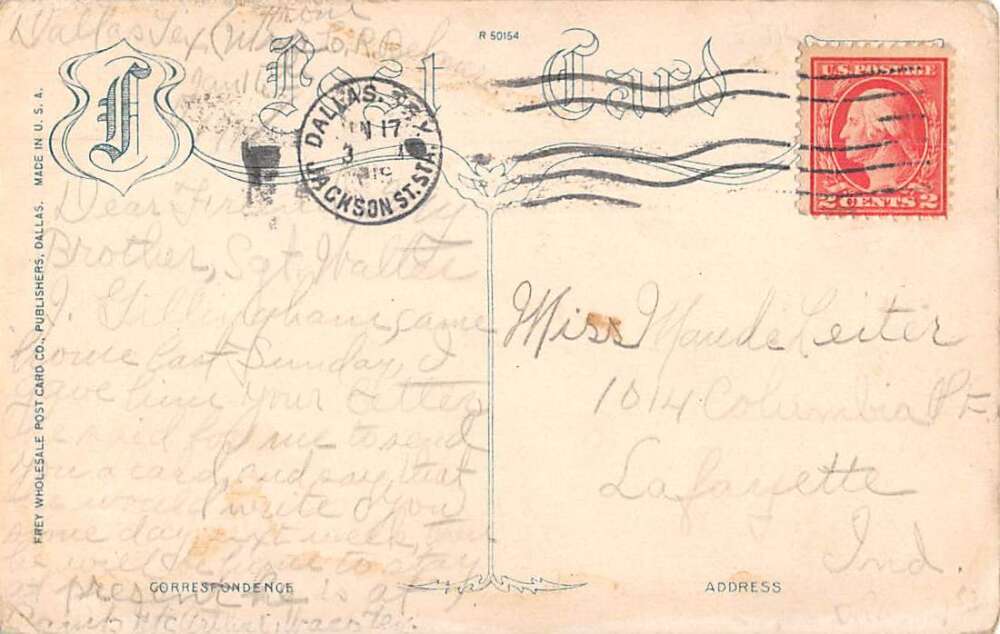 R 50154
Post Card
FREY WHOLESALE POST CARD CO., PUBLISHERS, DALLAS. MADE IN U.S.A.
F
Dallas Tex
DALLAS, TEX.
17
3
JACKSON ST. STA.
U.S. POSTAGE
2 CENTS 2
Dear Friend, My
Brother, Sgt. Walter
J. Gillingham, came
home last Sunday, I
gave him your letter
he said for me to send
you a card, and say that
he would write to you
some day next week, then
he will be home to stay
at present he is at
Miss Maude Leiter
1014 Columbia St.
Lafayette
Ind.
CORRESPONDENCE
ADDRESS